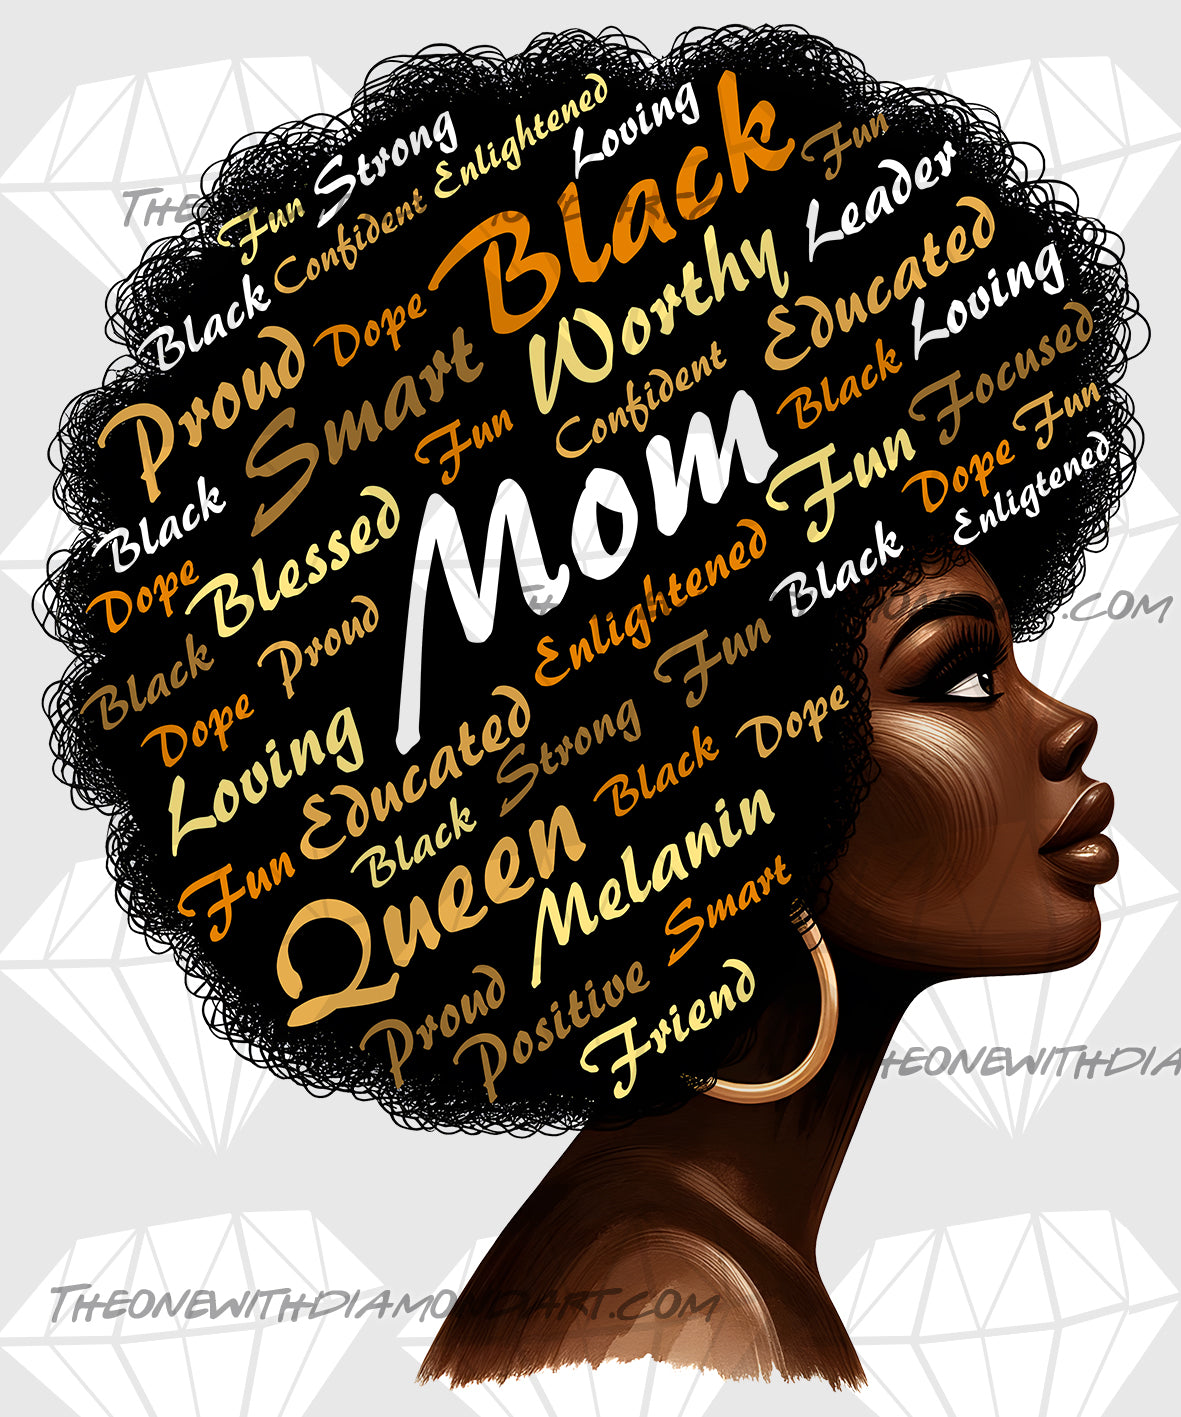 Strong
Enlightened
Loving
Black
Fun
Fun
Confident
Leader
Black
Dope
Worthy
Educated
Loving
Proud
Smart
Fun
Confident
Black
Focused
Mom
Fun
Dope
Fun
Enligtened
Black
Blessed
Enlightened
Black
Dope
Proud
Fun
Black
Dope
Loving
Educated
Strong
Black
Dope
Fun
Black
Queen
Melanin
Smart
Proud
Positive
Friend
Theonewithdiamondart.com